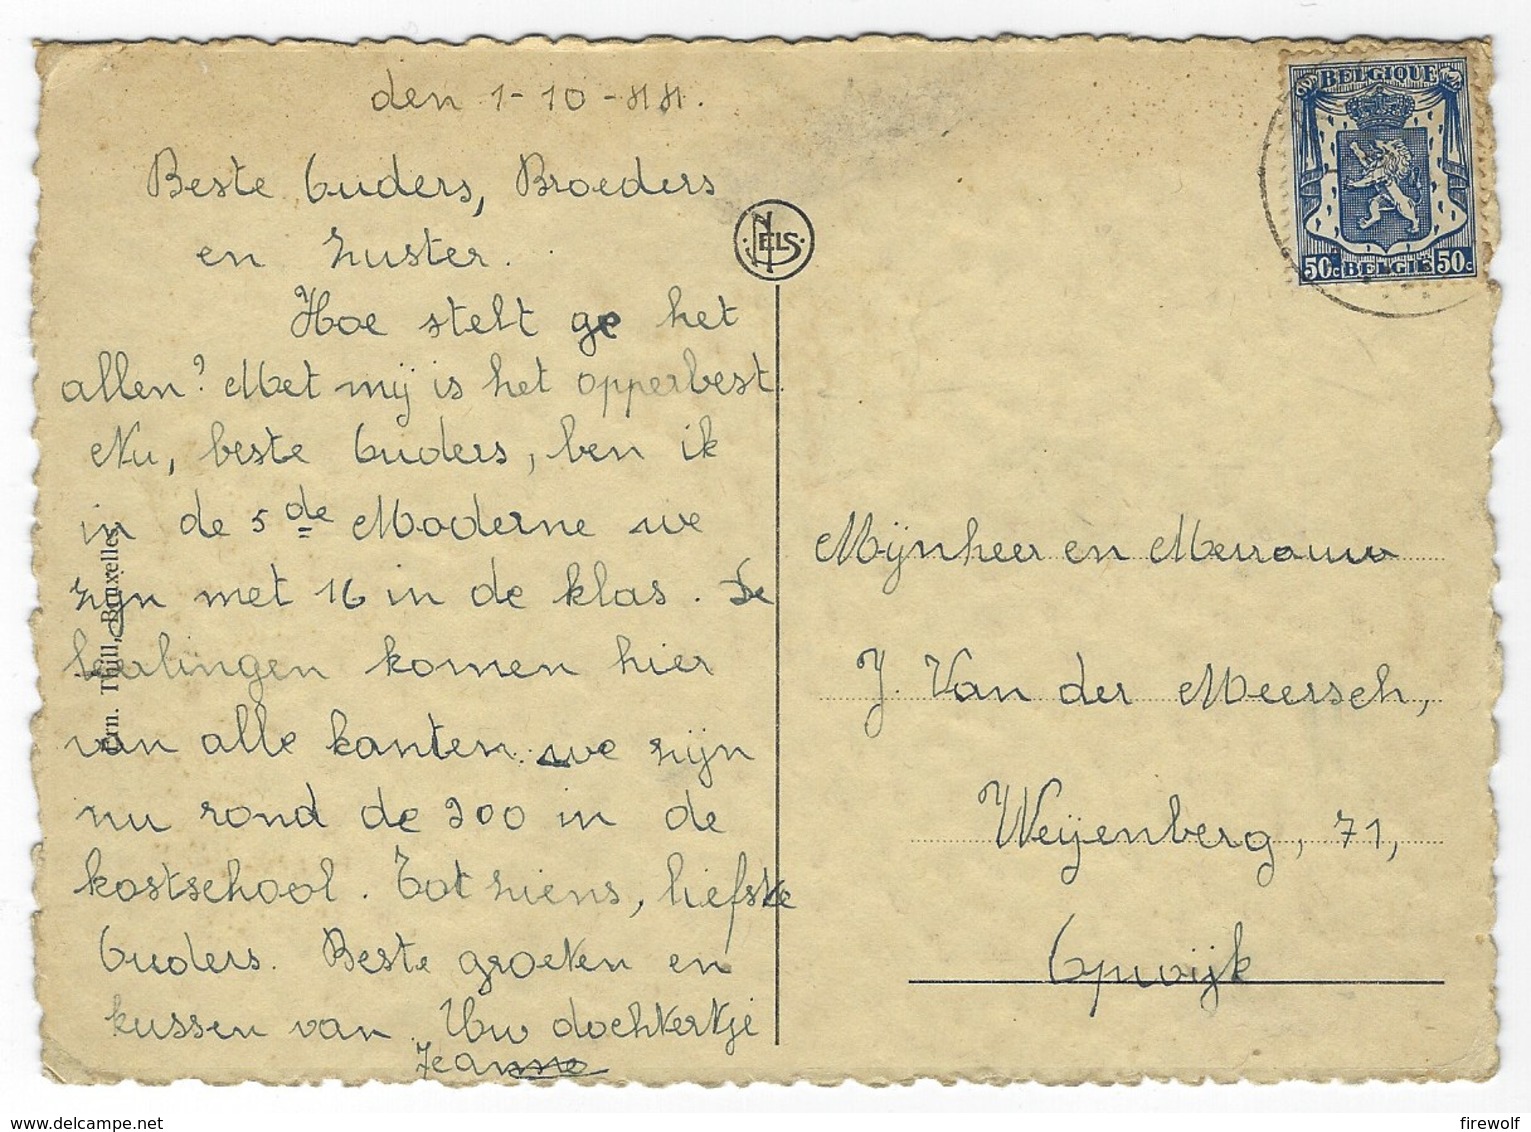 den 1-10-44.
Beste Ouders, Broeders
en zuster.
Hoe stelt ge het
allen? Met mij is het opperbest.
Nu, beste Ouders, ben ik
in de 5de Moderne we
zijn met 16 in de klas. De
leerlingen komen hier
van alle kanten. we zijn
nu rond de 200 in de
kostschool. Tot ziens, liefste
Ouders. Beste groeten en
kussen van Uw dochtertje
Jeanne
Ern. Thill, Bruxelles
NELS
BELGIQUE
50c BELGIE 50c
Mijnheer en Mevrouw
J. Van der Meersch,
Weijenberg, 71,
Opwijk
delcampe.net
firewolf